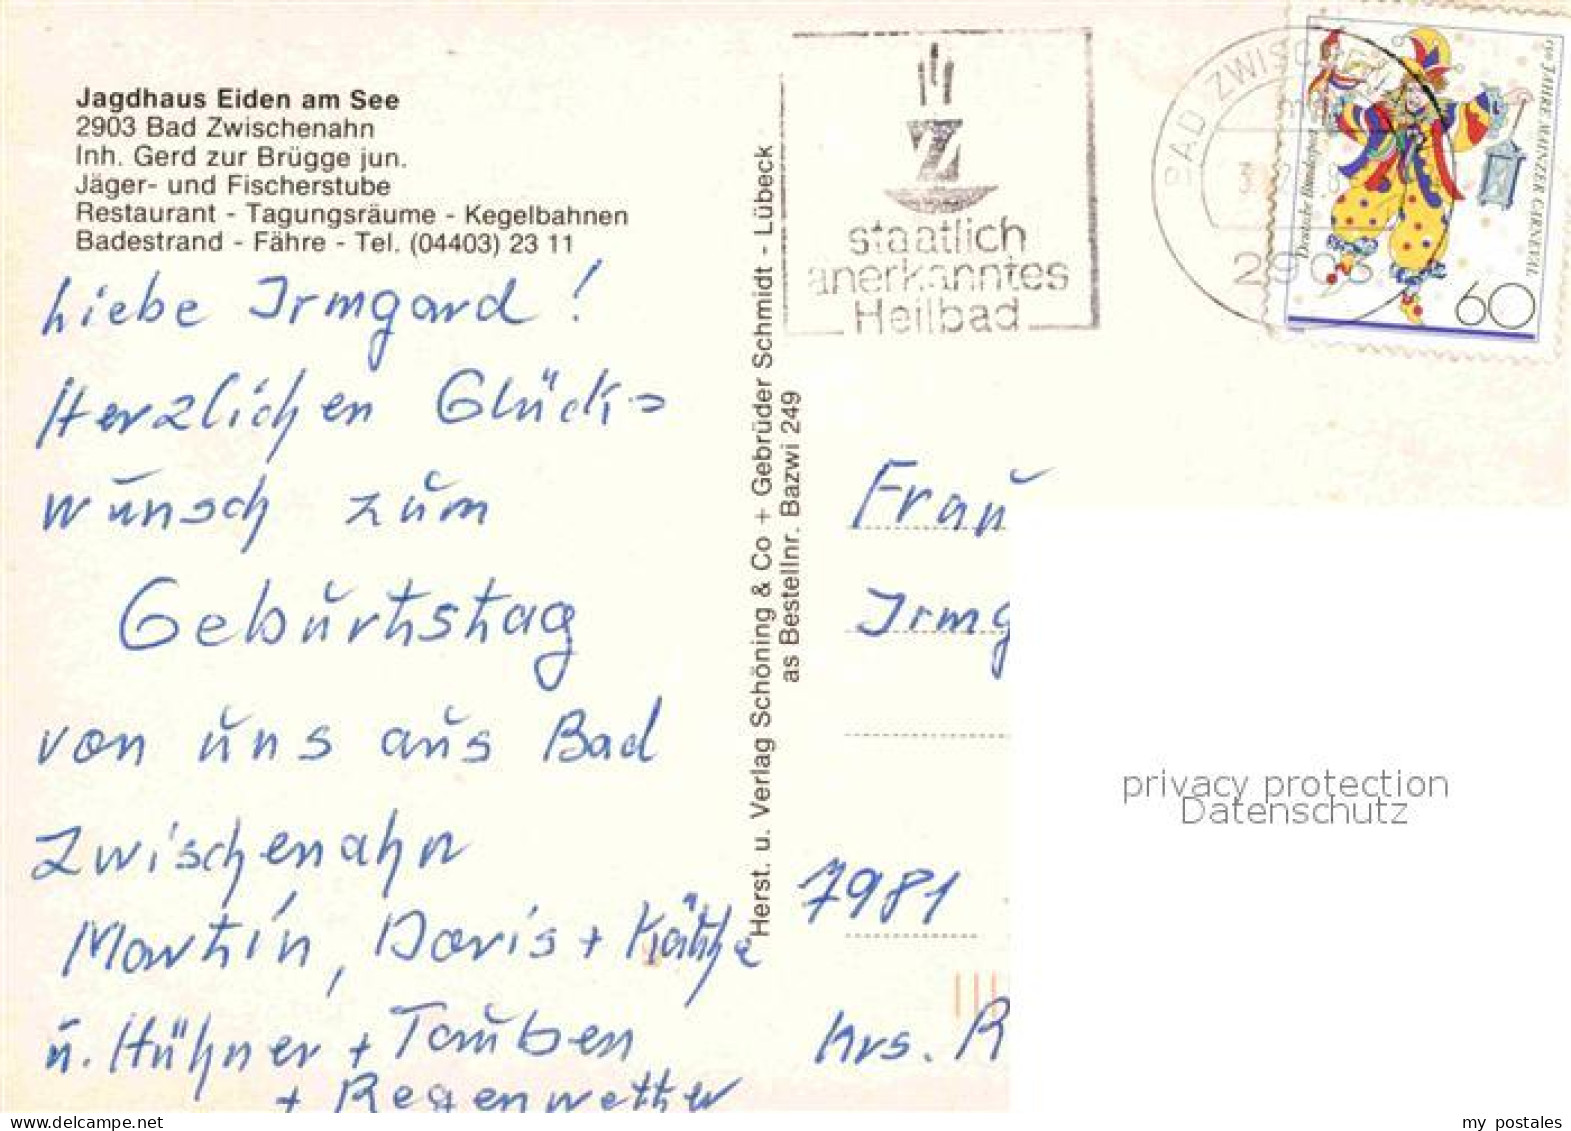 Jagdhaus Eiden am See
2903 Bad Zwischenahn
Inh. Gerd zur Brügge jun.
Jäger- und Fischerstube
Restaurant - Tagungsräume - Kegelbahnen
Badestrand - Fähre - Tel. (04403) 23 11
Liebe Irmgard!
Herzlichen Glück-
wunsch zum
Geburtstag
von uns aus Bad
Zwischenahn
Martin, Doris + Käthe
u. Hühner + Tauben
+ Regenwetter
Herst. u. Verlag Schöning & Co + Gebrüder Schmidt - Lübeck
as Bestellnr. Bazwi 249
Z
staatlich
anerkanntes
Heilbad
BAD ZWISCHENAHN
2903
Deutsche Bundespost
150 JAHRE MAINZER CARNEVAL
60
Frau
Irmg
7981
Krs. R
privacy protection
Datenschutz
my postales